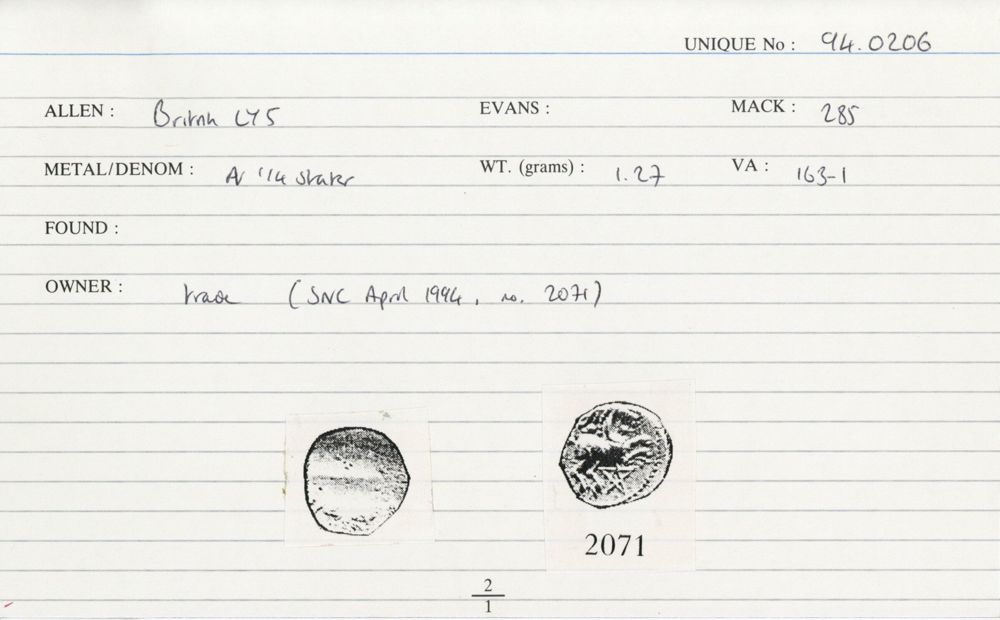 UNIQUE No : 94.0206
ALLEN : British LY5 EVANS : MACK : 285
METAL/DENOM : AV 1/4 stater WT. (grams) : 1.27 VA : 163-1
FOUND :
OWNER : trade (SNC April 1994, no. 2071)
2071
2
1